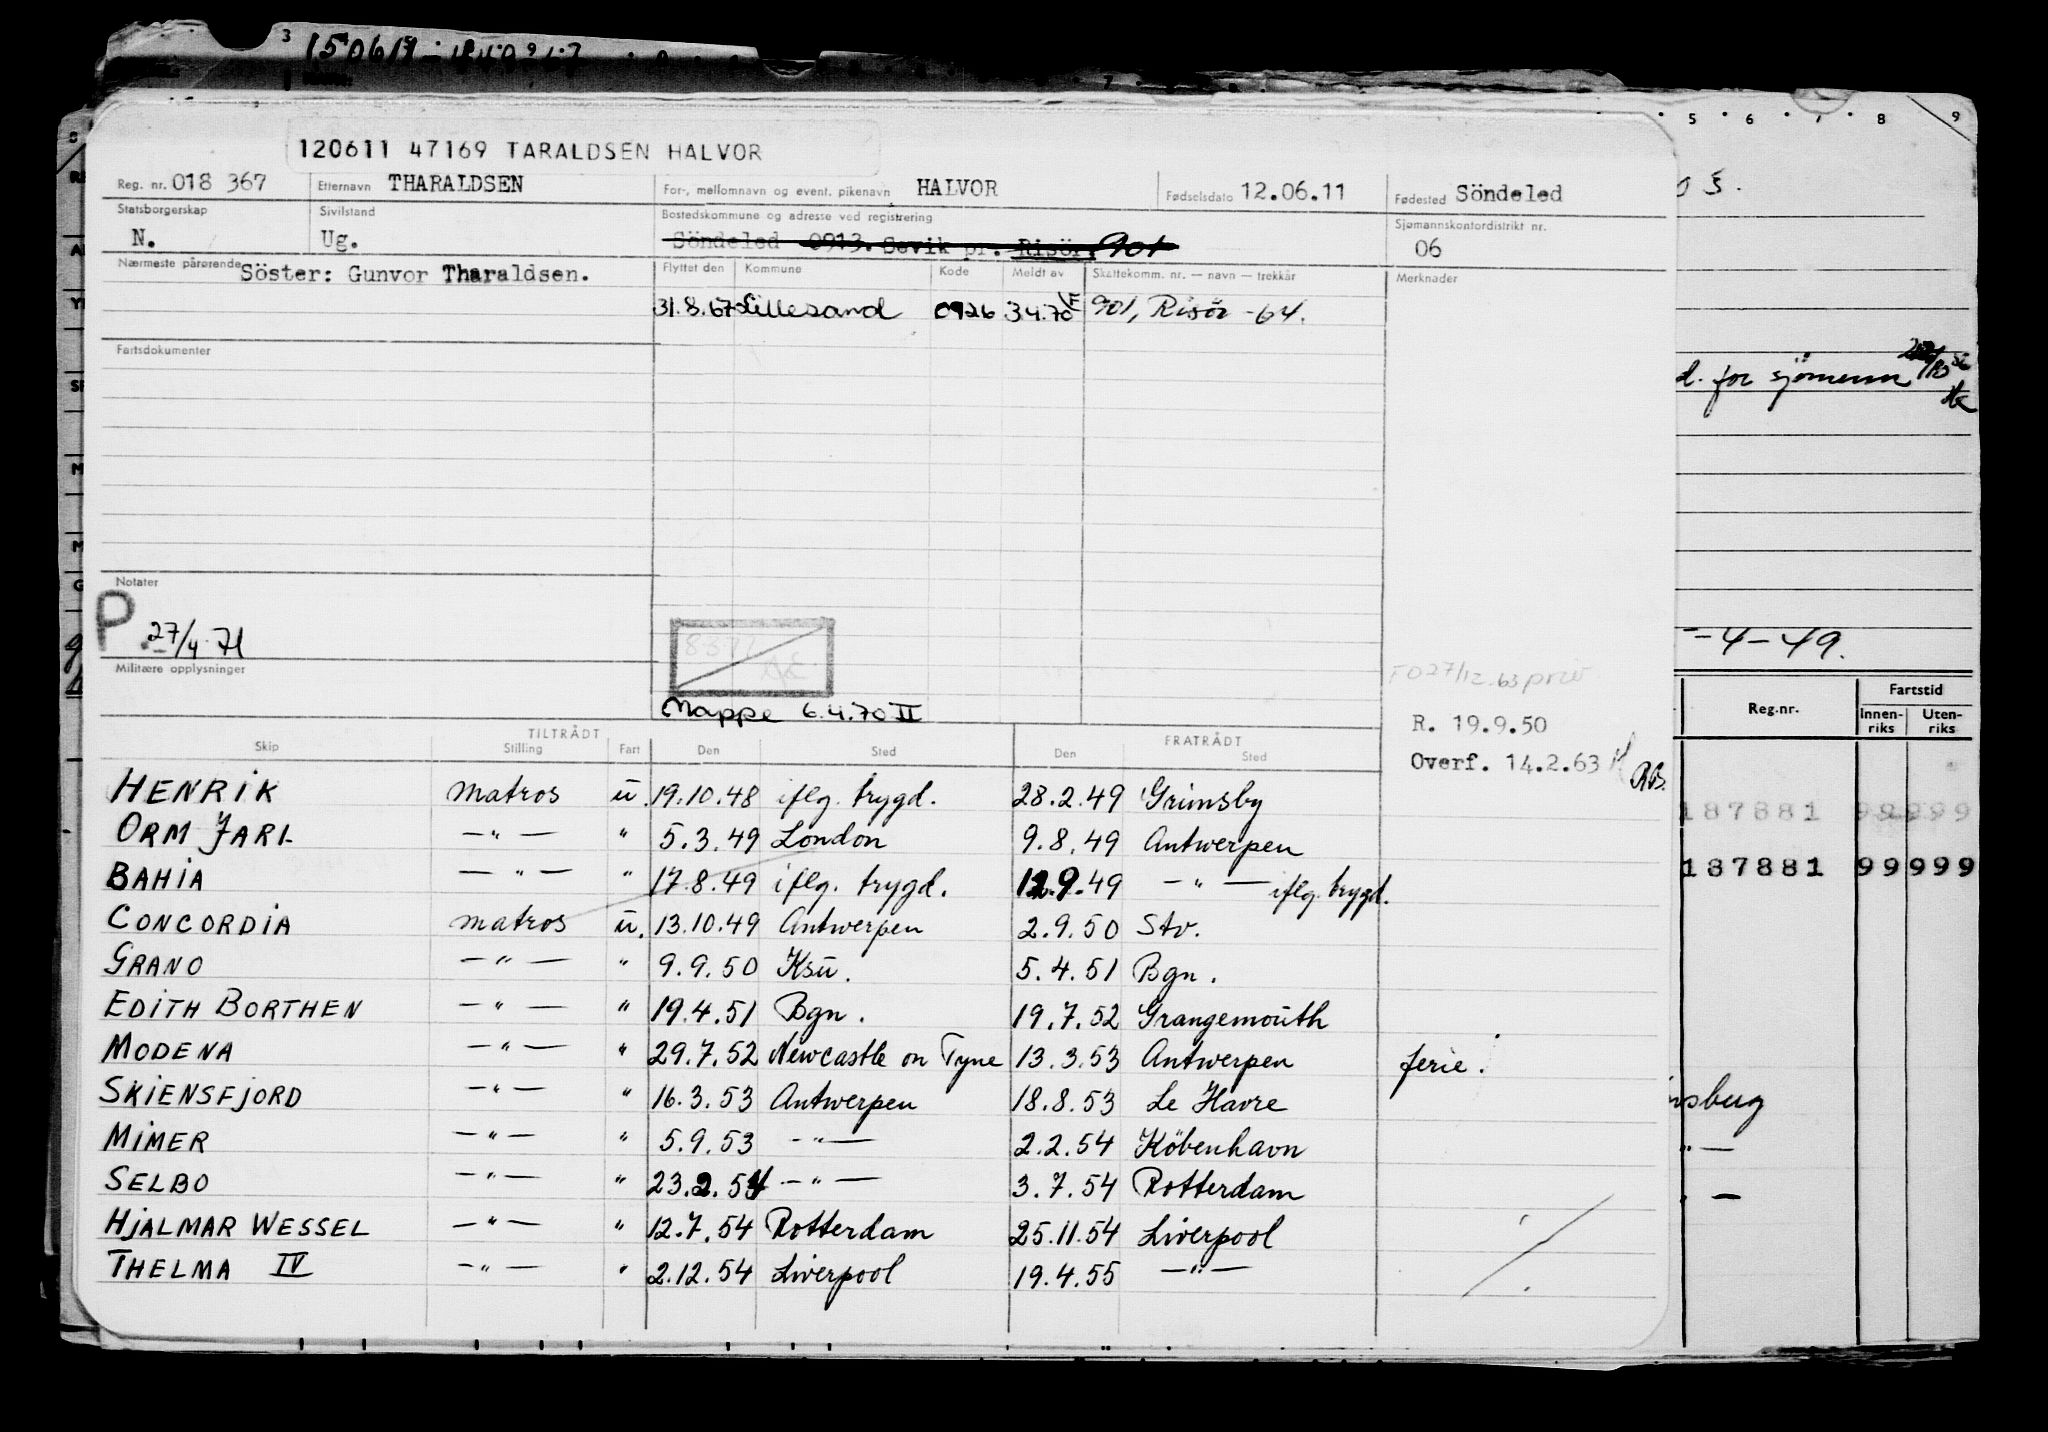 120611 47169 TARALDSEN HALVOR
Reg. nr. 018 367 Etternavn THARALDSEN For-, mellomnavn og event. pikenavn HALVOR Fødselsdato 12.06.11 Fødested Söndeled
Statsborgerskap N. Sivilstand Ug. Bostedskommune og adresse ved registrering Söndeled 0913. Sevik pr. Risör. 901 Sjømannskontordistrikt nr. 06
Nærmeste pårørende Söster: Gunvor Tharaldsen. Flyttet den Kommune Kode Meldt av Skattekomm. nr. — navn — trekkår Merknader
31.8.67 Lillesand 0926 901, Risör -64.
Fartsdokumenter
d. for sjömenn
Notater
P. 27/4-71
-4-49.
Militære opplysninger
Mappe 6.4.70 II
R. 19.9.50
Overf. 14.2.63
Reg.nr. Fartstid
Innenriks Utenriks
TILTRÅDT FRATRÅDT
Skip Stilling Fart Den Sted Den Sted
HENRIK matros u. 19.10.48 iflg. trygd. 28.2.49 Grimsby
187881 99999
ORM JARL —"— " 5.3.49 London 9.8.49 Antwerpen
BAHIA —"— " 17.8.49 iflg. trygd. 12.9.49 —"— iflg. trygd.
187881 99999
CONCORDIA matros u. 13.10.49 Antwerpen 2.9.50 Stv.
GRANO —"— " 9.9.50 Ksu. 5.4.51 Bgn.
EDITH BORTHEN —"— " 19.4.51 Bgn. 19.7.52 Grangemouth
MODENA —"— " 29.7.52 Newcastle on Tyne 13.3.53 Antwerpen ferie.
SKIENSFJORD —"— " 16.3.53 Antwerpen 18.8.53 Le Havre
MIMER —"— " 5.9.53 —"— 2.2.54 Köbenhavn
SELBO —"— " 23.2.54 —"— 3.7.54 Rotterdam
HJALMAR WESSEL —"— " 12.7.54 Rotterdam 25.11.54 Liverpool
THELMA IV —"— " 2.12.54 Liverpool 19.4.55 —"—